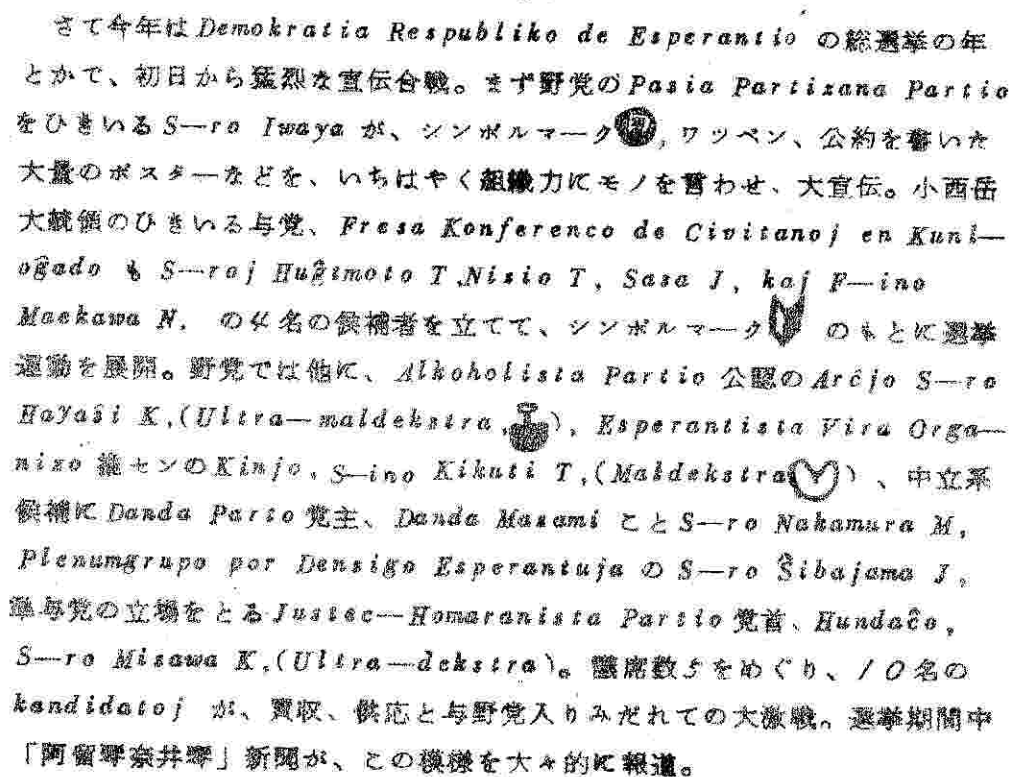 さて今年は Demokratia Respubliko de Esperantio の総選挙の年
とかで、初日から猛烈な宣伝合戦。まず野党の Pasia Partizana Partio
をひきいる S—ro Iwaya が、シンボルマーク, ワッペン、公約を書いた
大量のポスターなどを、いちはやく組織力にモノを言わせ、大宣伝。小西岳
大統領のひきいる与党、Fresa Konferenco de Civitanoj en Kunl—
oĝado も S—roj Huĝimoto T ,Nisio T, Sasa J, kaj F—ino
Maekawa N. の4名の候補者を立てて、シンボルマーク のもとに選挙
運動を展開。野党では他に、Alkoholista Partio 公認の Arĉjo S—ro
Hayaŝi K,(Ultra—maldekstra, ), Esperantista Vira Orga—
nizo 推センの Kinjo, S—ino Kikuti T,(Maldekstra )、中立系
候補に Danda Parto 党主、Danda Masami こと S—ro Nakamura M,
Plenumgrupo por Densigo Esperantuja の S—ro Ŝibajama J,
準与党の立場をとる Justec—Homaranista Partio 党首、Hundaĉo,
S—ro Misawa K,(Ultra—dekstra)。議席数5をめぐり、10名の
kandidatoj が、買収、供応と与野党入りみだれての大激戦。選挙期間中
「阿留琴奈井琴」新聞が、この模様を大々的に報道。